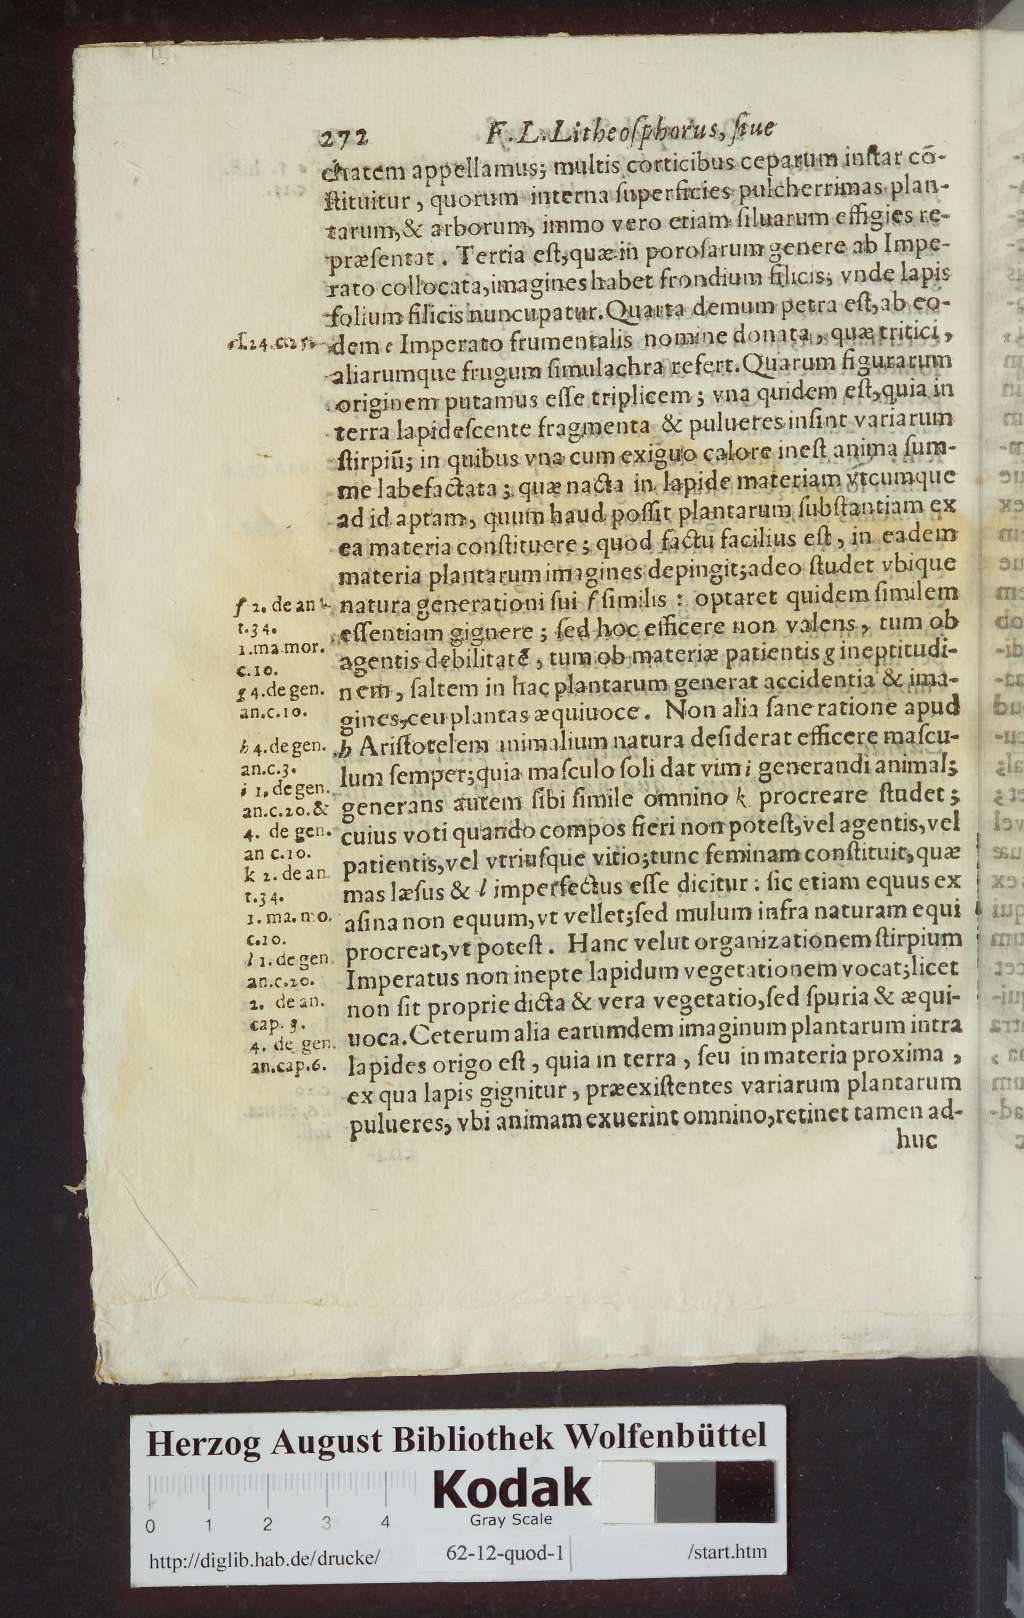 272 F. L. Litheosphorus, siue
chatem appellamus; multis corticibus ceparum instar cō-
stituitur, quorum interna superficies pulcherrimas plan-
tarum, & arborum, immo vero etiam siluarum effigies re-
præsentat. Tertia est, quæ in porosarum genere ab Impe-
rato collocata, imagines habet frondium filicis; vnde lapis
folium filicis nuncupatur. Quarta demum petra est, ab eo-
dem e Imperato frumentalis nomine donata, quæ tritici,
aliarumque frugum simulachra refert. Quarum figurarum
originem putamus esse triplicem; vna quidem est, quia in
terra lapidescente fragmenta & pulueres insint variarum
stirpiū; in quibus vna cum exiguo calore inest anima sum-
me labefactata; quæ nacta in lapide materiam vtcumque
ad id aptam, quum haud possit plantarum substantiam ex
ea materia constituere; quod factu facilius est, in eadem
materia plantarum imagines depingit; adeo studet vbique
natura generationi sui f similis: optaret quidem similem
essentiam gignere; sed hoc efficere non valens, tum ob
agentis debilitatē, tum ob materiæ patientis g ineptitudi-
nem, saltem in hac plantarum generat accidentia & ima-
gines, ceu plantas æquiuoce. Non alia sane ratione apud
h Aristotelem animalium natura desiderat efficere mascu-
lum semper; quia masculo soli dat vim i generandi animal;
generans autem sibi simile omnino k procreare studet;
cuius voti quando compos fieri non potest, vel agentis, vel
patientis, vel vtriusque vitio; tunc feminam constituit, quæ
mas læsus & l imperfectus esse dicitur: sic etiam equus ex
asina non equum, vt vellet; sed mulum infra naturam equi
procreat, vt potest. Hanc velut organizationem stirpium
Imperatus non inepte lapidum vegetationem vocat; licet
non sit proprie dicta & vera vegetatio, sed spuria & æqui-
uoca. Ceterum alia earumdem imaginum plantarum intra
lapides origo est, quia in terra, seu in materia proxima,
ex qua lapis gignitur, præexistentes variarum plantarum
pulueres, vbi animam exuerint omnino, retinet tamen ad-
huc
e l.24.c.25.
f 2. de an
t.34.
1.ma mor.
c.10.
g 4.de gen.
an.c.10.
h 4.de gen.
an.c.3.
i 1.de gen.
an.c.20.&
4. de gen.
an c.10.
k 2. de an
t.34.
1. ma. mo.
c.10.
l 1. de gen.
an.c.20.
2. de an.
cap. 3.
4. de gen.
an.cap.6.
Herzog August Bibliothek Wolfenbüttel
Kodak
Gray Scale
0 1 2 3 4
http://diglib.hab.de/drucke/ 62-12-quod-1 /start.htm